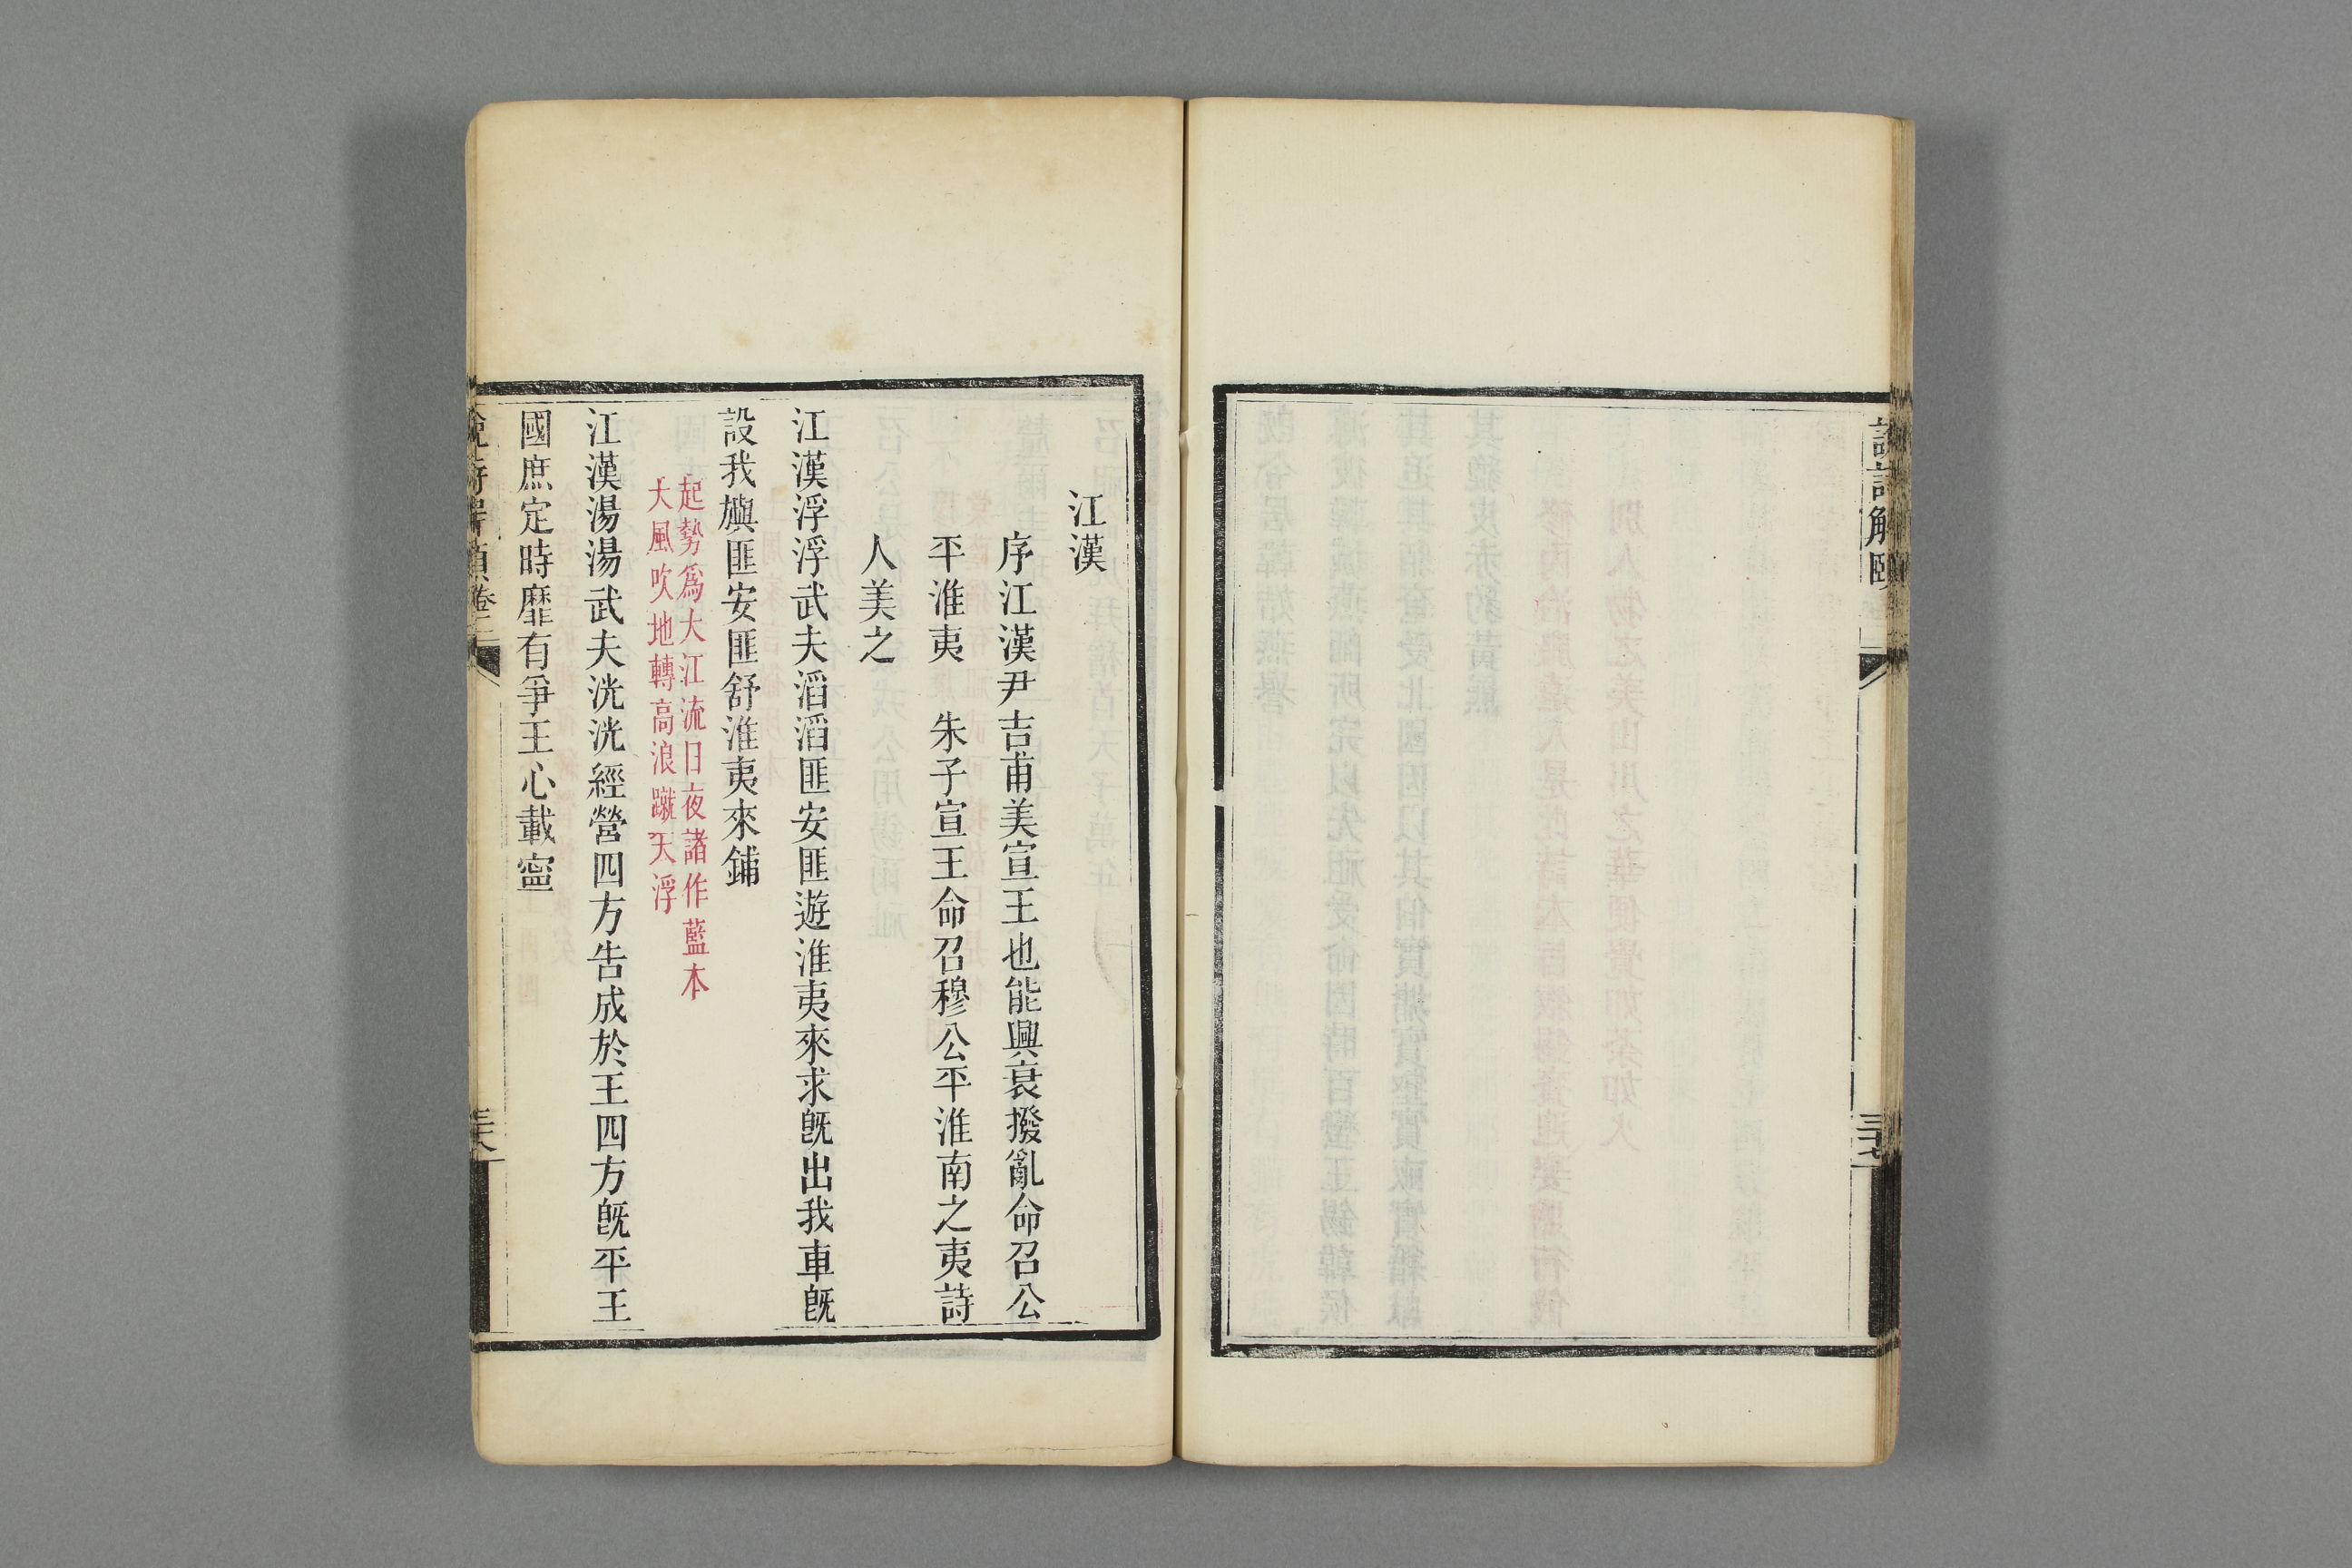 說詩解頤
三十七
江漢
序江漢尹吉甫美宣王也能興衰撥亂命召公
平淮夷　朱子宣王命召穆公平淮南之夷詩
人美之
江漢浮浮武夫滔滔匪安匪遊淮夷來求旣出我車旣
設我旟匪安匪舒淮夷來鋪
起勢爲大江流日夜諸作藍本
大風吹地轉高浪蹴天浮
江漢湯湯武夫洸洸經營四方告成於王四方旣平王
國庶定時靡有爭王心載寍
說詩解頤卷二
三十八